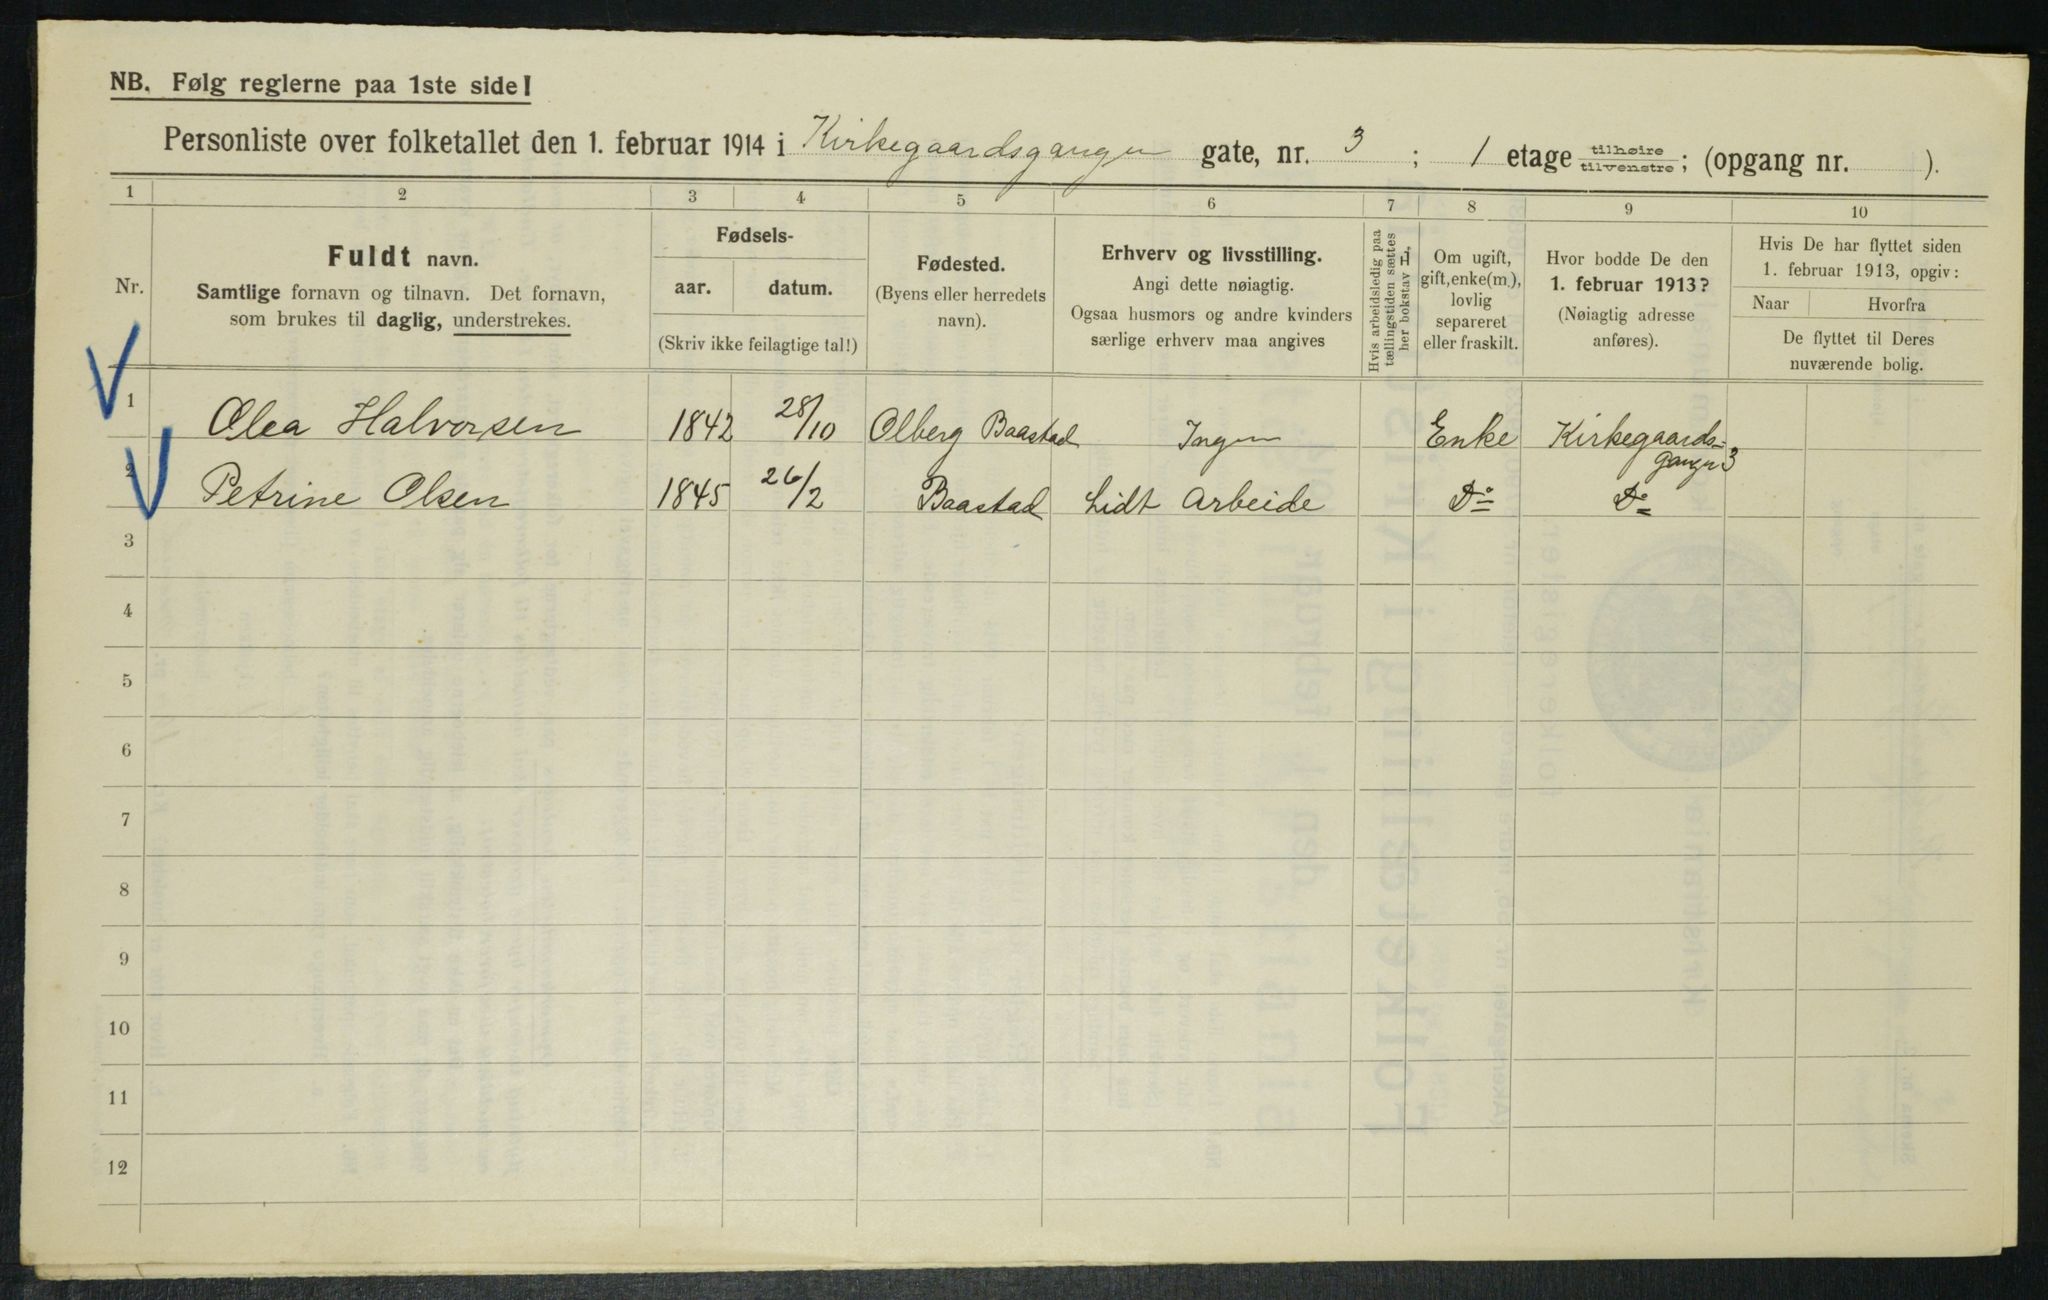 NB. Følg reglerne paa 1ste side!
Personliste over folketallet den 1. februar 1914 i Kirkegaardsgangen gate, nr. 3 ; 1 etage tilhøire/tilvenstre; (opgang nr. ).
1 2 3 4 5 6 7 8 9 10
Nr.
Fuldt navn.
Samtlige fornavn og tilnavn. Det fornavn,
som brukes til daglig, understrekes.
Fødsels-
aar. datum.
(Skriv ikke feilagtige tal!)
Fødested.
(Byens eller herredets
navn).
Erhverv og livsstilling.
Angi dette nøiagtig.
Ogsaa husmors og andre kvinders
særlige erhverv maa angives
Hvis arbeidsledig paa
tællingstiden sættes
her bokstav L.
Om ugift,
gift, enke(m.),
lovlig
separeret
eller fraskilt.
Hvor bodde De den
1. februar 1913?
(Nøiagtig adresse
anføres).
Hvis De har flyttet siden
1. februar 1913, opgiv:
Naar Hvorfra
De flyttet til Deres
nuværende bolig.
1 Olea Halvorsen 1842 28/10 Olberg Baastad Ingen Enke Kirkegaards=
gangen 3
2 Petrine Olsen 1845 26/2 Baastad Lidt Arbeide Do Do
3
4
5
6
7
8
9
10
11
12